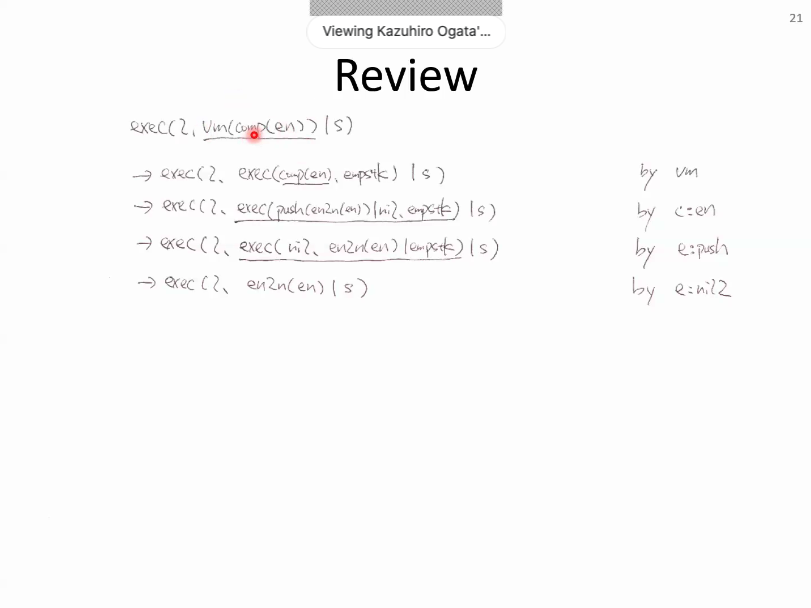 21
Viewing Kazuhiro Ogata'...
Review
exec(l, vm(comp(en)) | s)
→ exec(l, exec(comp(en), empstk) | s) by vm
→ exec(l, exec(push(en2n(en)) | nil, empstk) | s) by c:en
→ exec(l, exec(nil, en2n(en) | empstk) | s) by e:push
→ exec(l, en2n(en) | s) by e:nil2